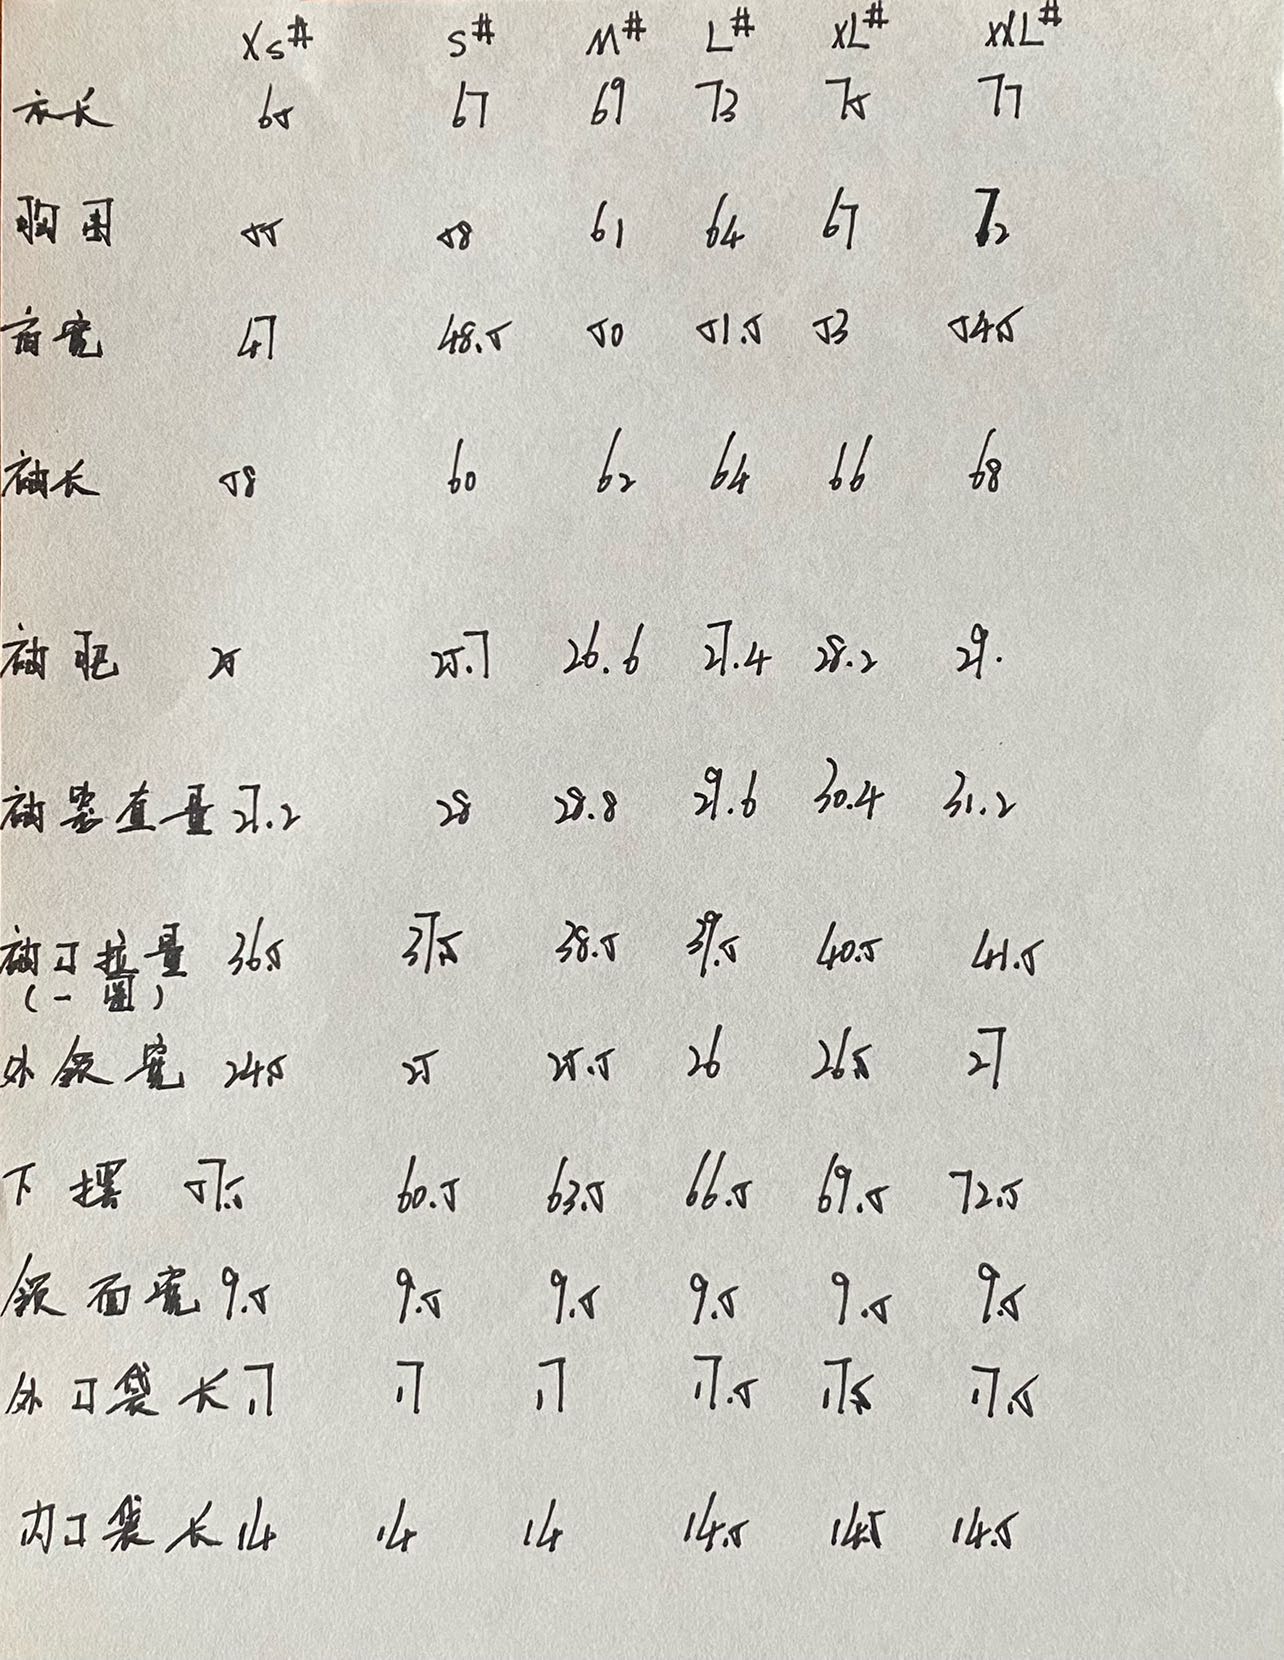 XS# S# M# L# XL# XXL#
衣长 65 67 69 73 75 77
胸围 55 58 61 64 67 72
肩宽 47 48.5 50 51.5 53 54.5
袖长 58 60 62 64 66 68
袖肥 25 25.7 26.6 27.4 28.2 29.
袖窿直量 27.2 28 28.8 29.6 30.4 31.2
袖口拉量 36.5 37.5 38.5 39.5 40.5 41.5
(一圈)
外领宽 24.5 25 25.5 26 26.5 27
下摆 57.5 60.5 63.5 66.5 69.5 72.5
领面宽 9.5 9.5 9.5 9.5 9.5 9.5
外口袋长 17 17 17 17.5 17.5 17.5
内口袋长 14 14 14 14.5 14.5 14.5